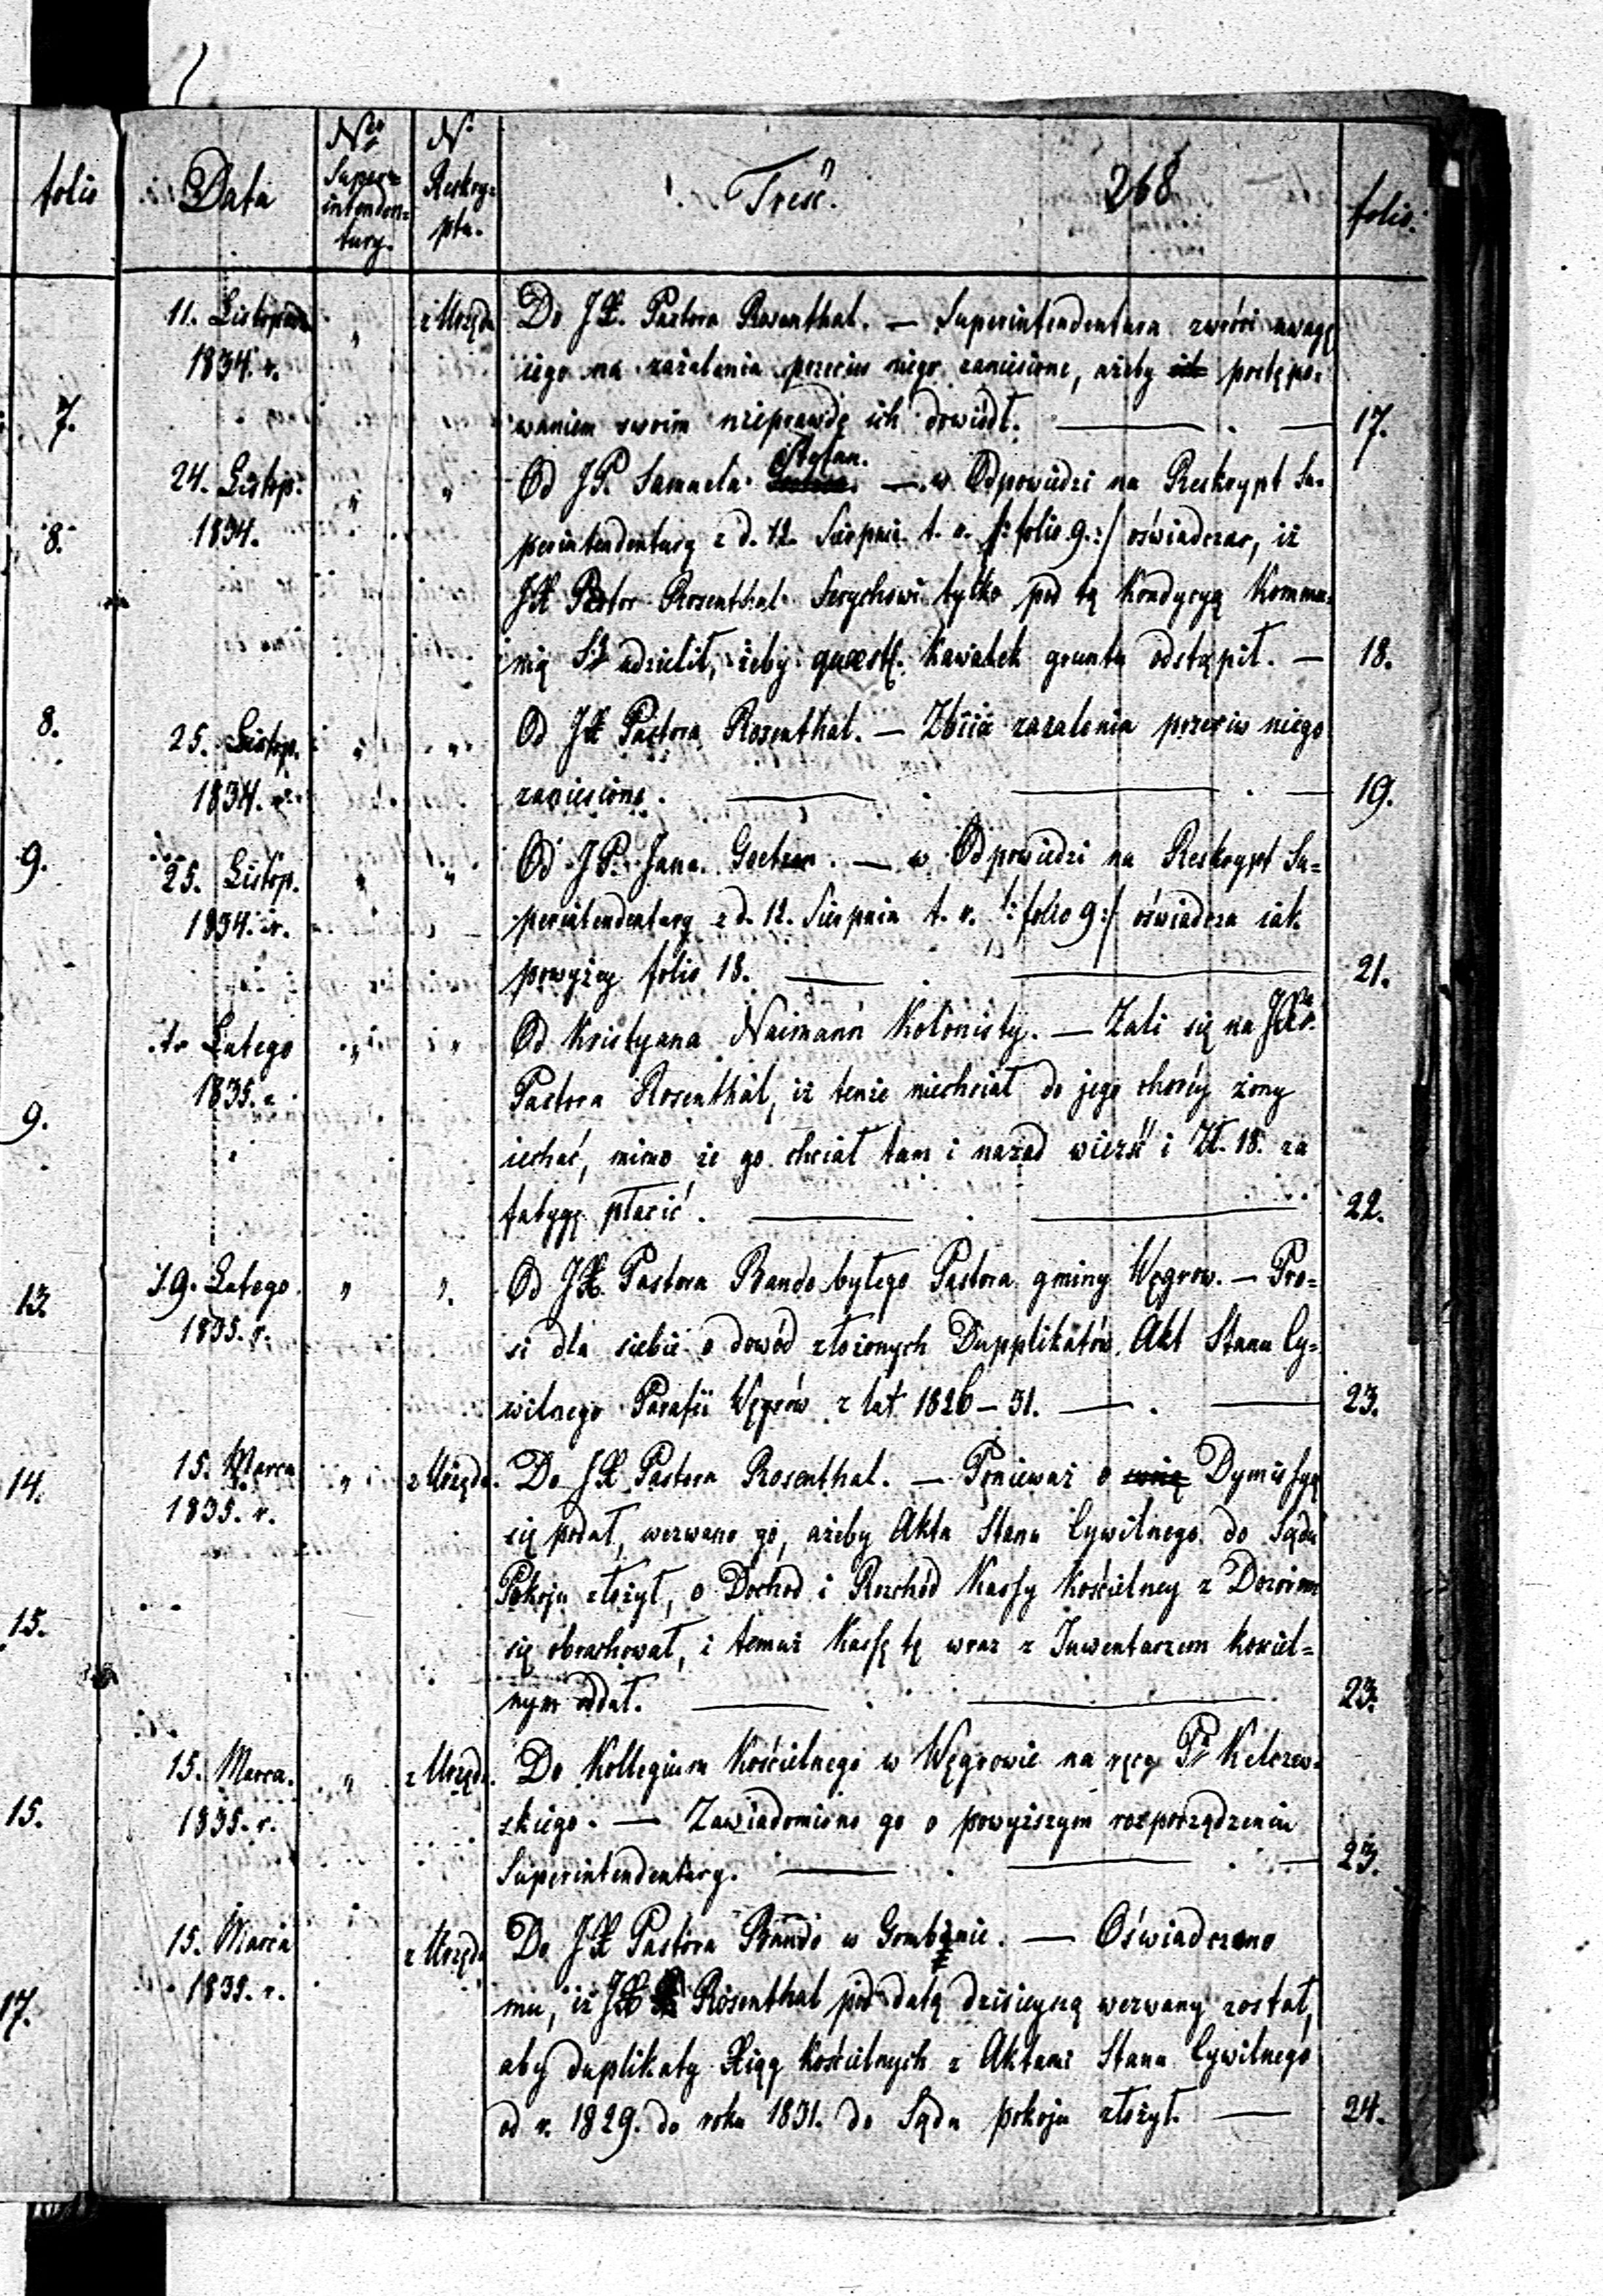 folio
7.
8.
8.
9.
9.
13.
14.
15.
15.
17.
Data
Nro Super=intenden=tury.
N. Reskry=ptu.
Treść.
268
folio.
11. Listopada 1834. r.
"
z Urzędu
Do JX. Pastora Rosenthal. — Superintendentura zwróci uwagę
iego na zażalenia przeciw niego zaniesione, ażeby postępo=
waniem swoim nieprawdę ich dowiódł. — . —
17.
24. Listop. 1834.
"
"
Od JP. Samuela Stefan. — w Odpowiedzi na Reskrypt Su=
perintendentury z d. 12. Sierpnia t. r. /: folio 9. :/ oświadcza, iż
JX Pastor Rosenthal tylko pod tą Kondycyą Kommu=
nią Sż udzielił, żeby quaest. kawałek gruntu odstąpił. —
18.
25. Listop. 1834. r.
"
"
Od JX Pastora Rosenthal. — Zbiia zażalenia przeciw niego
zaniesione. — . — . —
19.
25. Listop. 1834. r.
"
"
Od JP. Jana Goetzen. — w Odpowiedzi na Reskrypt Su=
perintendentury z d. 12. Sierpnia t. r. /: folio 9 :/ oświadcza iak
powyżey folio 18. — . —
21.
Lutego 1835. r.
"
"
Od Kristyana Naimann Kolonisty. — Żali się na JXa.
Pastora Rosenthal, iż tenże niechciał do jego chorey żony
iechać, mimo że go chciał tam i nazad wieźć i Zł. 18. za
fatygę płacić. — . —
22.
19. Lutego 1835. r.
"
"
Od JX. Pastora Rando byłego Pastora gminy Węgrow. — Pro=
si dla siebie o dowód złożonych Dupplikatów Akt Stanu Cy=
wilnego Parafii Węgrów z lat 1826 — 31. — . —
23.
15. Marca 1835. r.
"
z Urzędu.
Do JX Pastora Rosenthal. — Ponieważ o swią Dymissyę
się podał, wezwano go, ażeby Akta Stanu Cywilnego do Sądu
Pokoju złożył, o Dochod i Rozchód Kassy Kościelney z Dozorem
się obrachował, i temuż Kassę tę wraz z Inwentarzem koście=
lnym oddał. — . —
23.
15. Marca. 1835. r.
"
z Urzędu.
Do Kollegium Kościelnego w Węgrowie na ręce Pa Kelczew=
skiego. — Zawiadomiono go o powyższym rozporządzeniu
Superintendentury. — . — . —
23.
15. Marca 1835. r.
z Urzędu
Do JX Pastora Rando w Gombinie. — Oświadczono
mu, iż JX Rosenthal pod datą dzisieyszą wezwany został,
aby duplikaty Xiąg Kościelnych z Aktami Stanu Cywilnego
od r. 1829. do roku 1831. do Sądu pokoju złożył. —
24.